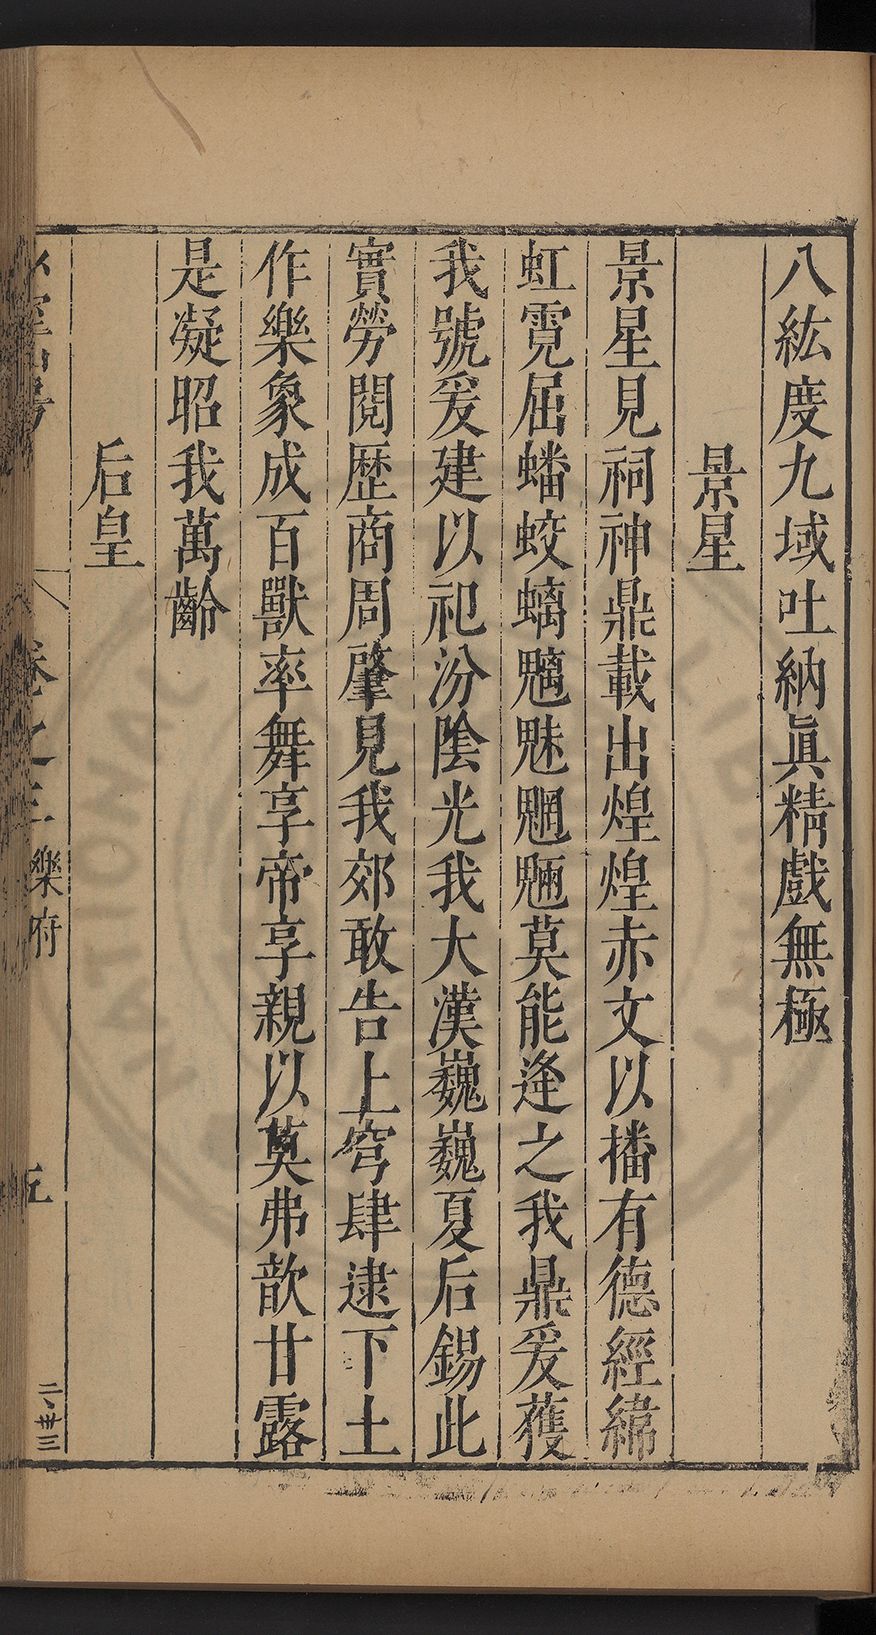 八紘度九域吐納眞精戲無極
景星
景星見祠神鼎載出煌煌赤文以播有德經緯
虹霓屈蟠蛟螭魑魅魍魎莫能逢之我鼎爰獲
我號爰建以祀汾陰光我大漢巍巍夏后錫此
實勞閱歷商周肇見我郊敢告上穹肆逮下土
作樂象成百獸率舞享帝享親以莫弗歆甘露
是凝昭我萬齡
后皇
卷之三
樂府
五
二、卅三